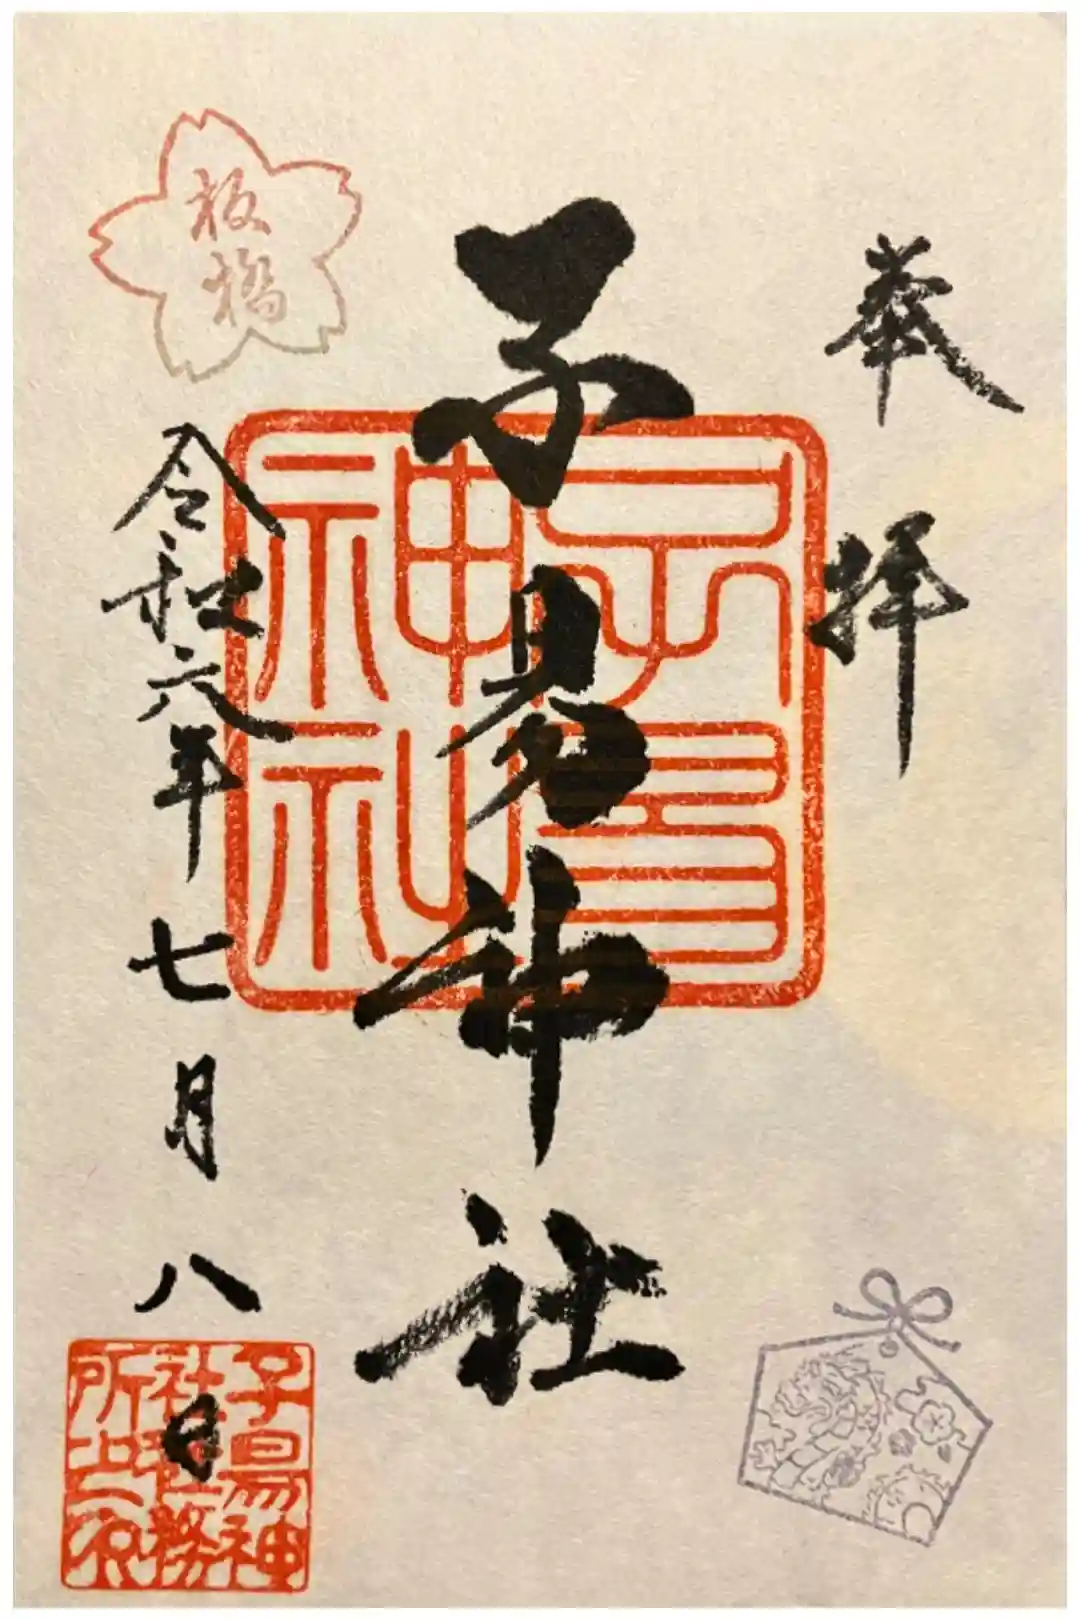 奉拝
子易神社
子易
神社
板橋
令和六年七月八日
子易神
社社務
所之印